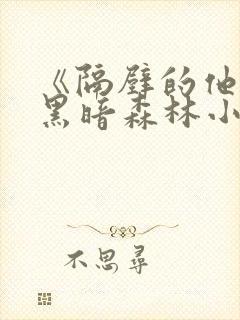 《隔壁的他
黑暗森林小
不思尋